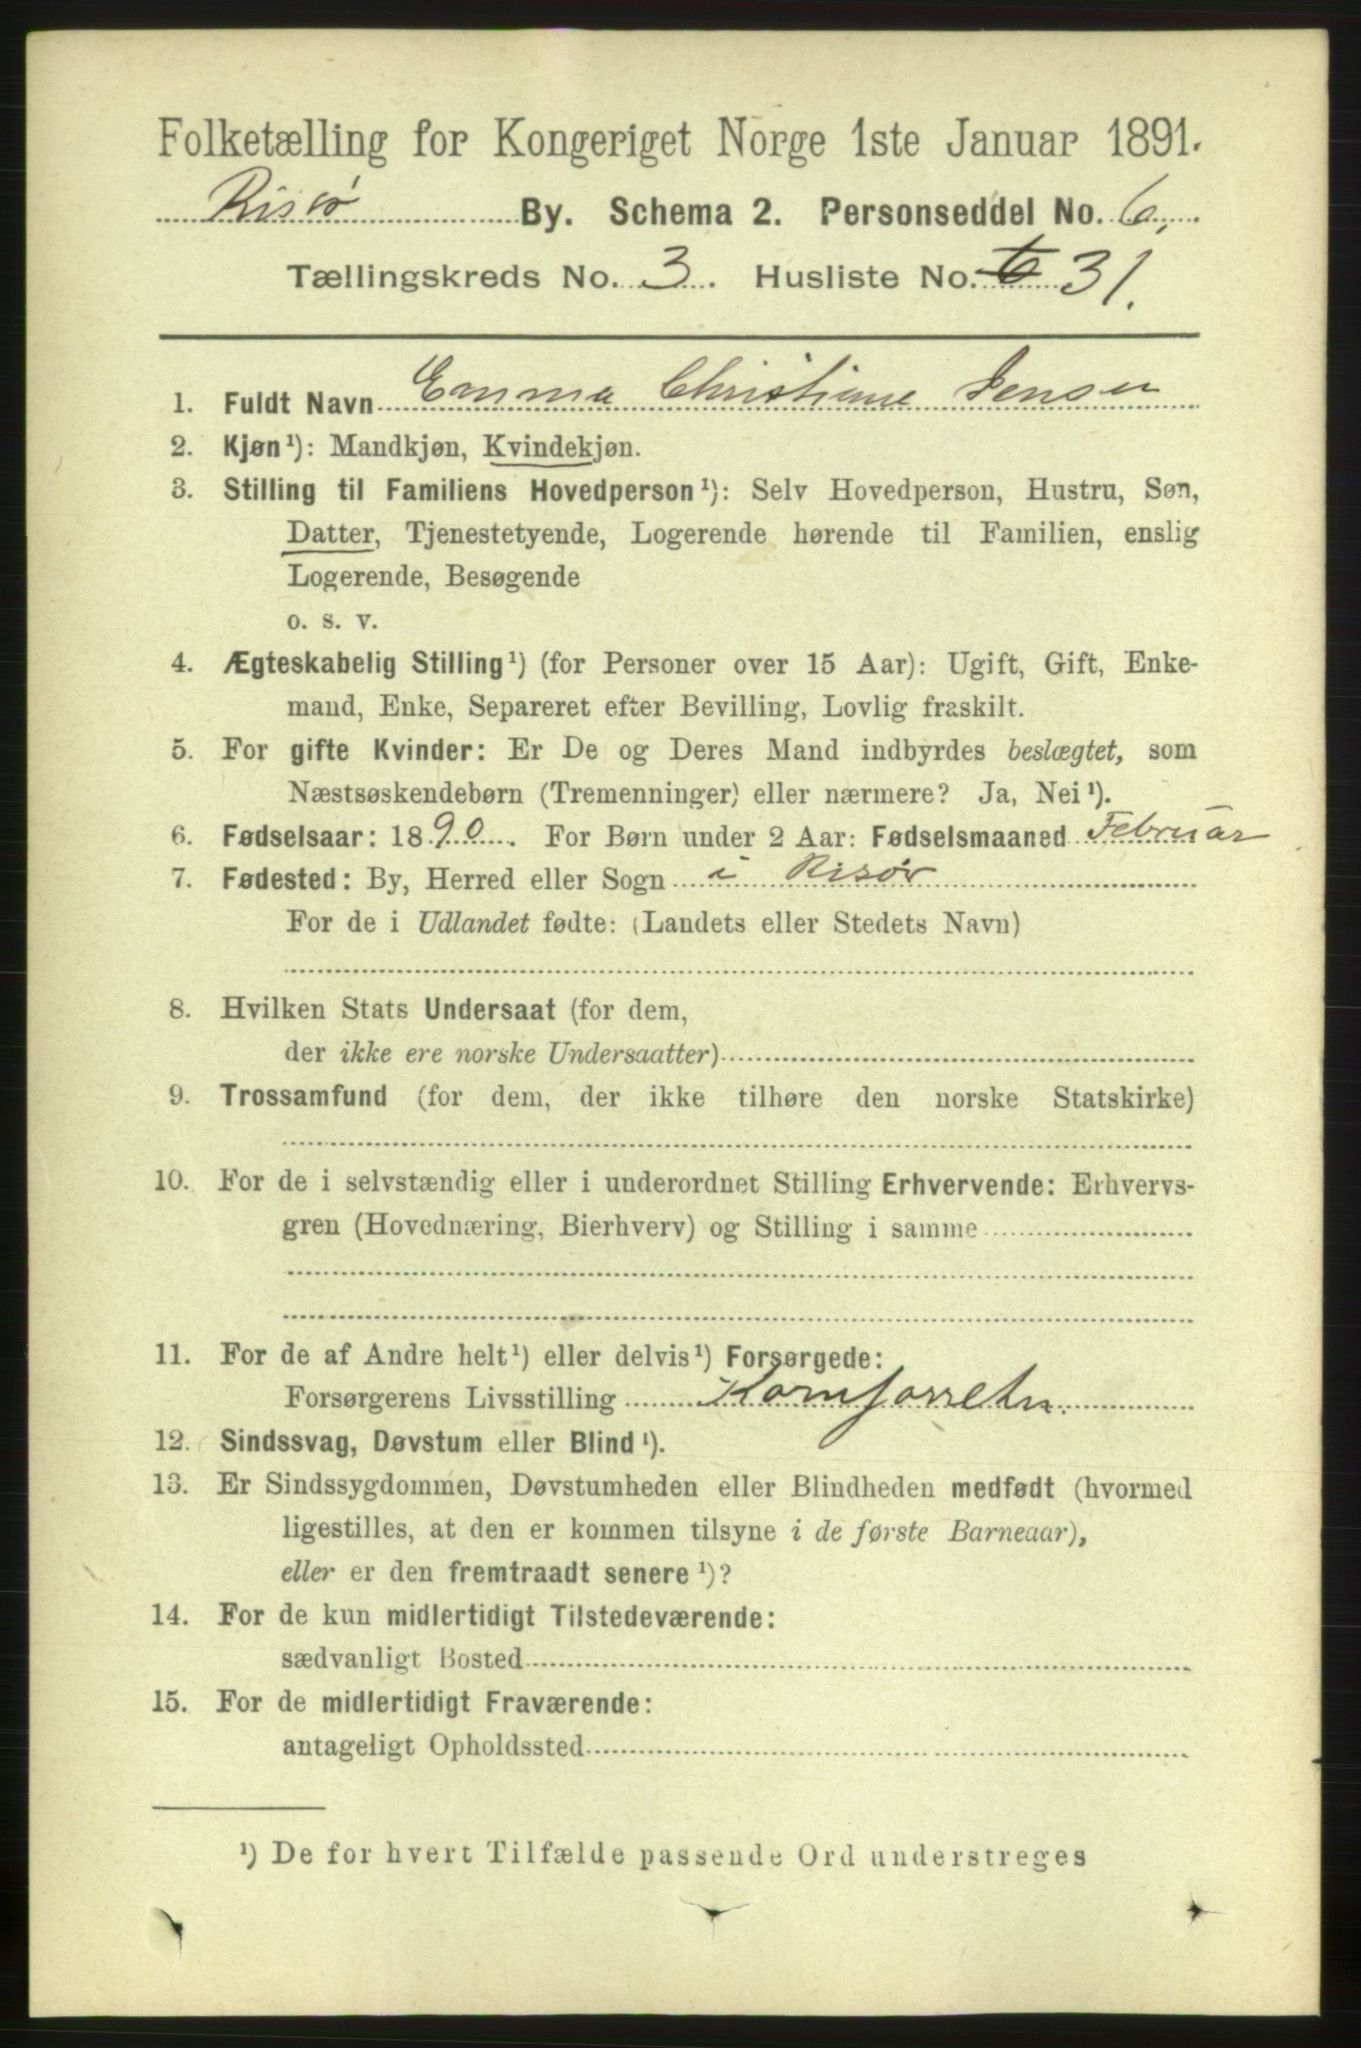 Folketælling for Kongeriget Norge 1ste Januar 1891.
Risør By. Schema 2. Personseddel No. 6.
Tællingskreds No. 3. Husliste No. 6 31.
1. Fuldt Navn Emma Christiane Jensen
2. Kjøn¹): Mandkjøn, Kvindekjøn.
3. Stilling til Familiens Hovedperson¹): Selv Hovedperson, Hustru, Søn,
Datter, Tjenestetyende, Logerende hørende til Familien, enslig
Logerende, Besøgende
o. s. v.
4. Ægteskabelig Stilling¹) (for Personer over 15 Aar): Ugift, Gift, Enke-
mand, Enke, Separeret efter Bevilling, Lovlig fraskilt.
5. For gifte Kvinder: Er De og Deres Mand indbyrdes beslægtet, som
Næstsøskendebørn (Tremenninger) eller nærmere? Ja, Nei¹).
6. Fødselsaar: 1890. For Børn under 2 Aar: Fødselsmaaned Februar
7. Fødested: By, Herred eller Sogn i Risør
For de i Udlandet fødte: (Landets eller Stedets Navn)
8. Hvilken Stats Undersaat (for dem,
der ikke ere norske Undersaatter)
9. Trossamfund (for dem, der ikke tilhøre den norske Statskirke)
10. For de i selvstændig eller i underordnet Stilling Erhvervende: Erhvervs-
gren (Hovednæring, Bierhverv) og Stilling i samme
11. For de af Andre helt¹) eller delvis¹) Forsørgede:
Forsørgerens Livsstilling
12. Sindssvag, Døvstum eller Blind¹).
13. Er Sindssygdommen, Døvstumheden eller Blindheden medfødt (hvormed
ligestilles, at den er kommen tilsyne i de første Barneaar),
eller er den fremtraadt senere¹)?
14. For de kun midlertidigt Tilstedeværende:
sædvanligt Bosted
15. For de midlertidigt Fraværende:
antageligt Opholdssted
¹) De for hvert Tilfælde passende Ord understreges